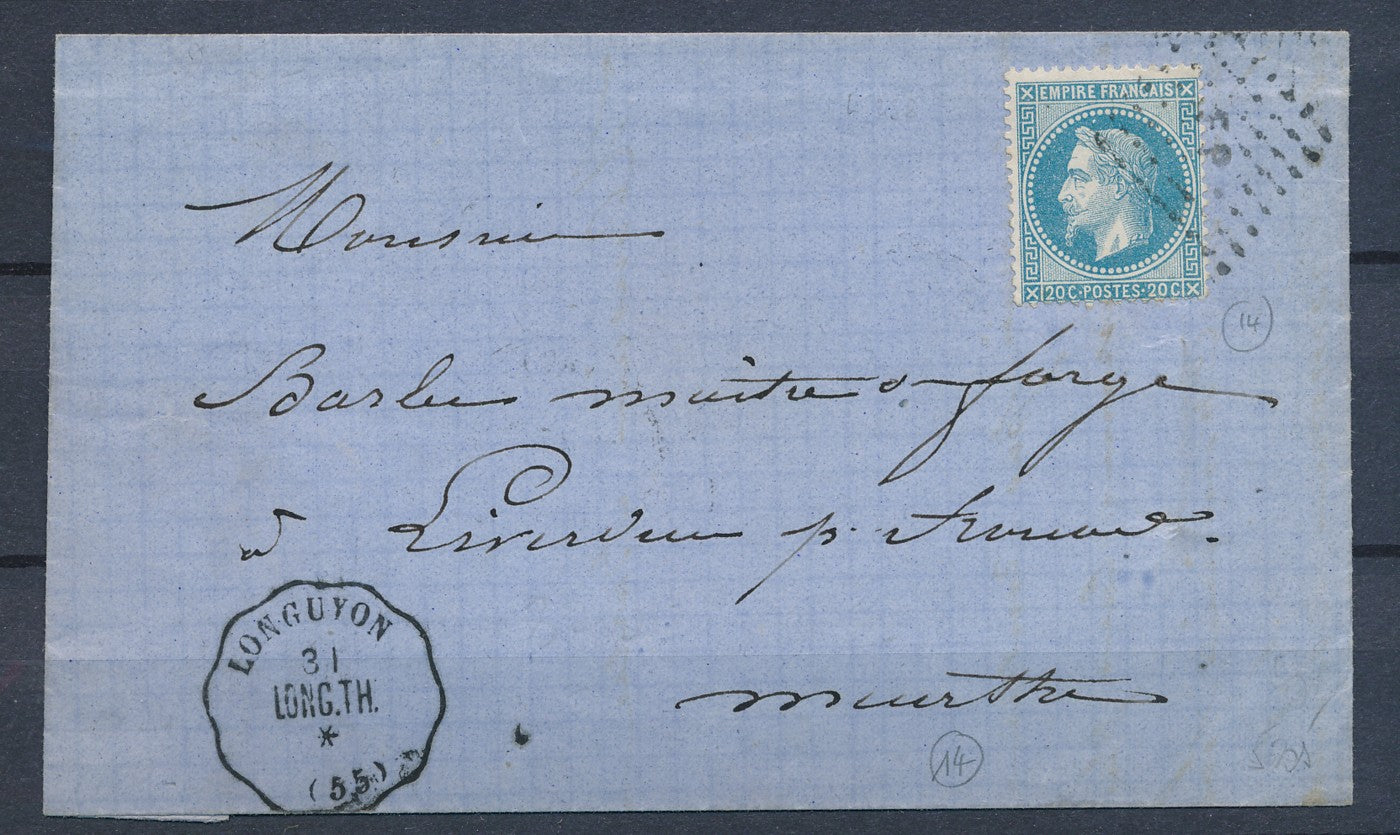 EMPIRE FRANÇAIS
20C·POSTES·20C
14
Monsieur
Barbe maitre d forge
à Liverdun p. Frouard.
meurthe
LONGUYON
31
LONG.TH.
*
(55)
14